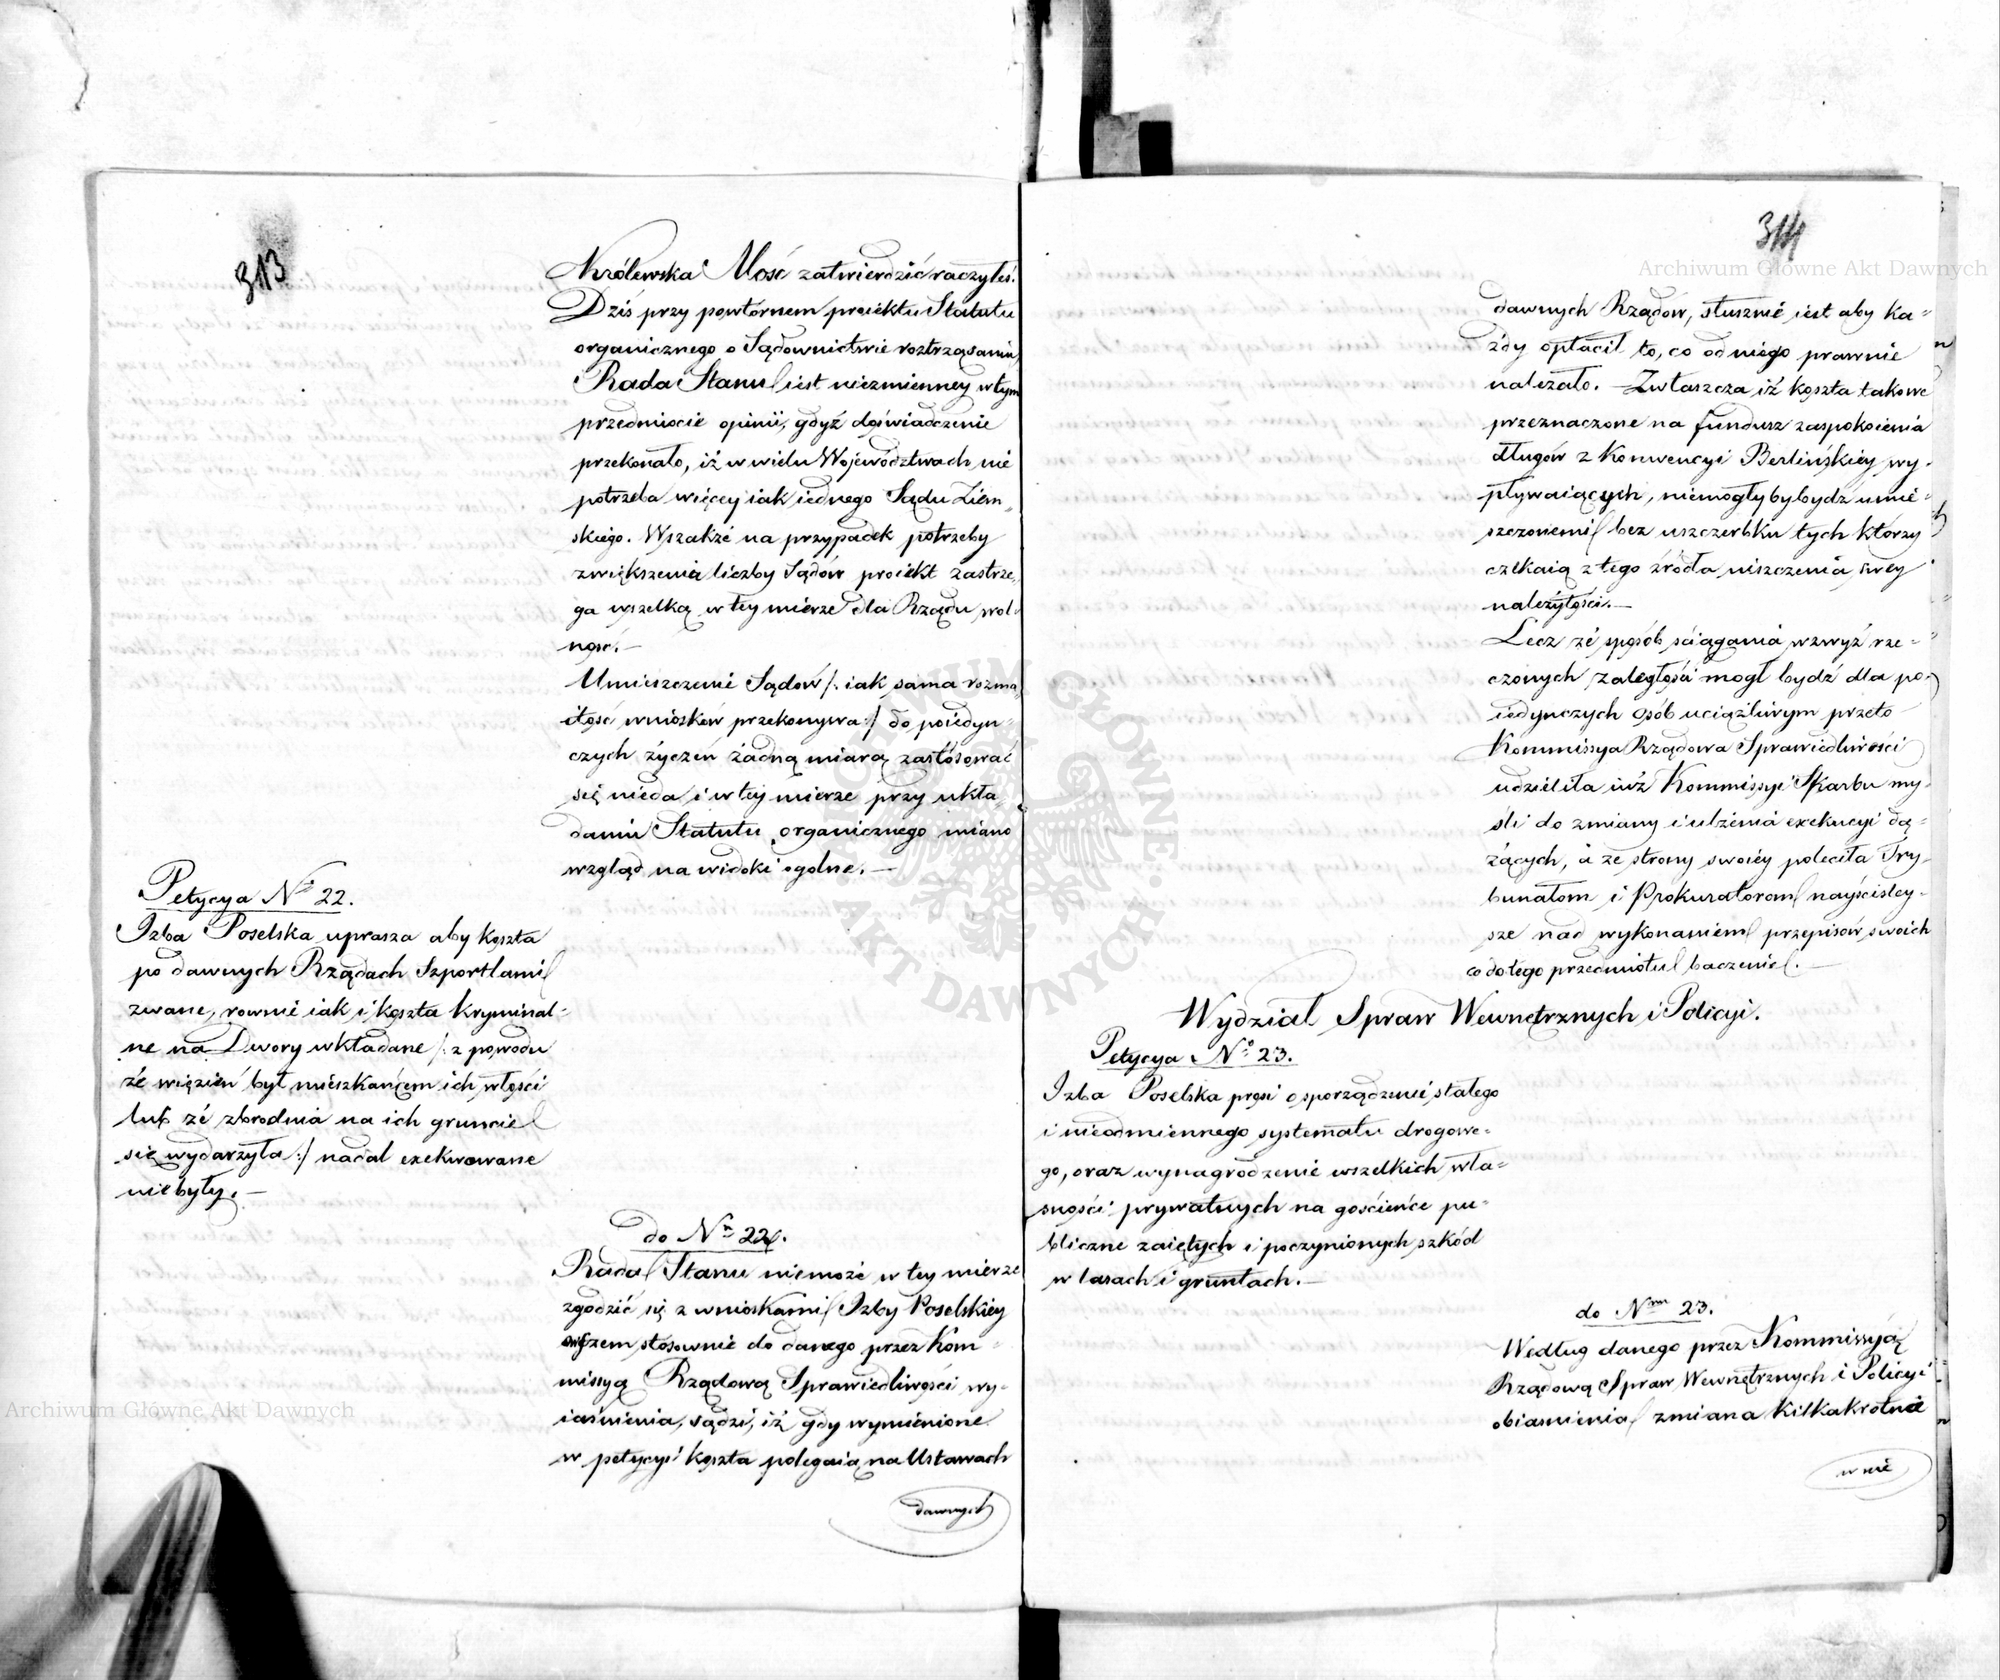 313
Królewska Mość zatwierdzić raczyłeś.
Dziś przy powtórnem proiektu Statutu
organicznego o Sądownictwie roztrząsaniu
Rada Stanu iest niezmienney w tym
przedmiocie opinii, gdyż doświadczenie
przekonało, iż w wielu Województwach nie
potrzeba więcey iak iednego Sądu Ziem„
skiego. Wszakże na przypadek potrzeby
zwiększenia liczby Sądów proiekt zastrze„
ga wszelką w tey mierze dla Rządu wol„
ność.—
Umieszczenie Sądów /: iak sama rozma„
itość wniosków przekonywa :/ do poiedyn„
czych życzeń żadną miarą zastosować
się nieda i w tey mierze przy ukła„
daniu Statutu organicznego miano
wzgląd na widoki ogolne.—
Petycya No 22.
Izba Poselska uprasza aby koszta
po dawnych Rządach Szportlami
zwane, rownie iak i koszta kryminal„
ne na Dwory wkładane /: z powodu
że więzień był mieszkańcem ich włości
lub że zbrodnia na ich gruncie
się wydarzyła :/ nadal exekwowane
nie były.—
do Nr 22.
Rada Stanu niemoże w tey mierze
zgodzić się z wnioskami Izby Poselskiey
owszem stosownie do danego przez Kom„
missyą Rządową Sprawiedliwości wy„
iaśnienia, sądzi, iż gdy wymienione
w petycyi koszta polegaią na Ustawach
dawnych
314
dawnych Rządów, słusznie iest aby ka„
żdy opłacił to, co od niego prawnie
należało. — Zwłaszcza iż koszta takowe
przeznaczone na fundusz zaspokoienia
długów z Konwencyi Berlińskiey wy„
pływaiących, niemogłyby bydź umie„
szczonemi bez uszczerbku tych którzy
czekaią z tego źródła uiszczenia swey
należytości.—
Lecz że sposób ściągania wzwyż rze„
czonych zaległości mogł bydź dla po„
iedynczych osób uciążliwym przeto
Kommissya Rządowa Sprawiedliwości
udzieliła iuż Kommissyi Skarbu my„
śli do zmiany i ulżenia exekucyi dą„
żących, a ze strony swoiey poleciła Try„
bunałom i Prokuratorom nayściśley„
sze nad wykonaniem przepisów swoich
co do tego przedmiotu baczenie.—
Wydział Spraw Wewnętrznych i Policyi.
Petycya No 23.
Izba Poselska prosi o sporządzenie stałego
i nieodmiennego systematu drogowe„
go, oraz wynagrodzenie wszelkich wła„
sności prywatnych na gościeńce pu„
bliczne zaiętych i poczynionych szkód
w lasach i gruntach.—
do Nrm 23.
Według danego przez Kommissyią
Rządową Spraw Wewnętrznych i Policyi
obiasnienia zmiana kilkakrotna
w nie
Archiwum Główne Akt Dawnych
Archiwum Główne Akt Dawnych
ARCHIWUM GŁÓWNE AKT DAWNYCH